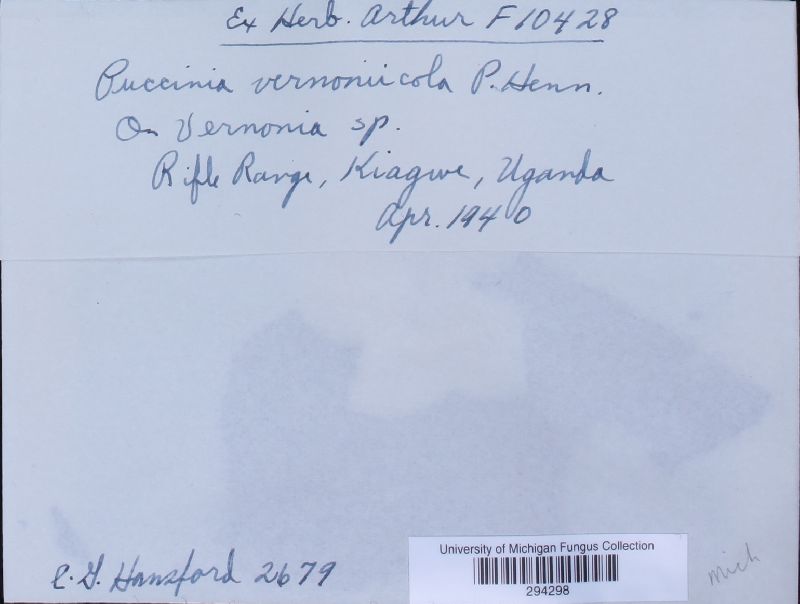 Ex Herb. Arthur F10428
Puccinia vernoniicola P. Henn.
On Vernonia sp.
Rifle Range, Kiagwe, Uganda
Apr. 1940
C. G. Hansford 2679
University of Michigan Fungus Collection
294298
mich